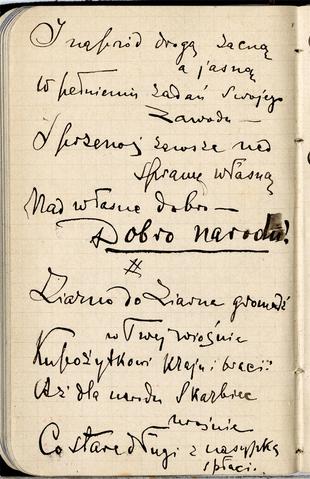 I naprzód drogą zacną
a jasną
W pełnieniu zadań Swojego
Zawodu –
I przenoś zawsze nad
sprawę własną
Nad własne dobro –
Dobro narodu!
#
Ziarno do Ziarna gromadź
w Twej wiośnie
Ku pożytkowi Kraju i braci:
Aż dla narodu Skarbiec
urośnie
Co stare długi z nasypką
spłaci.